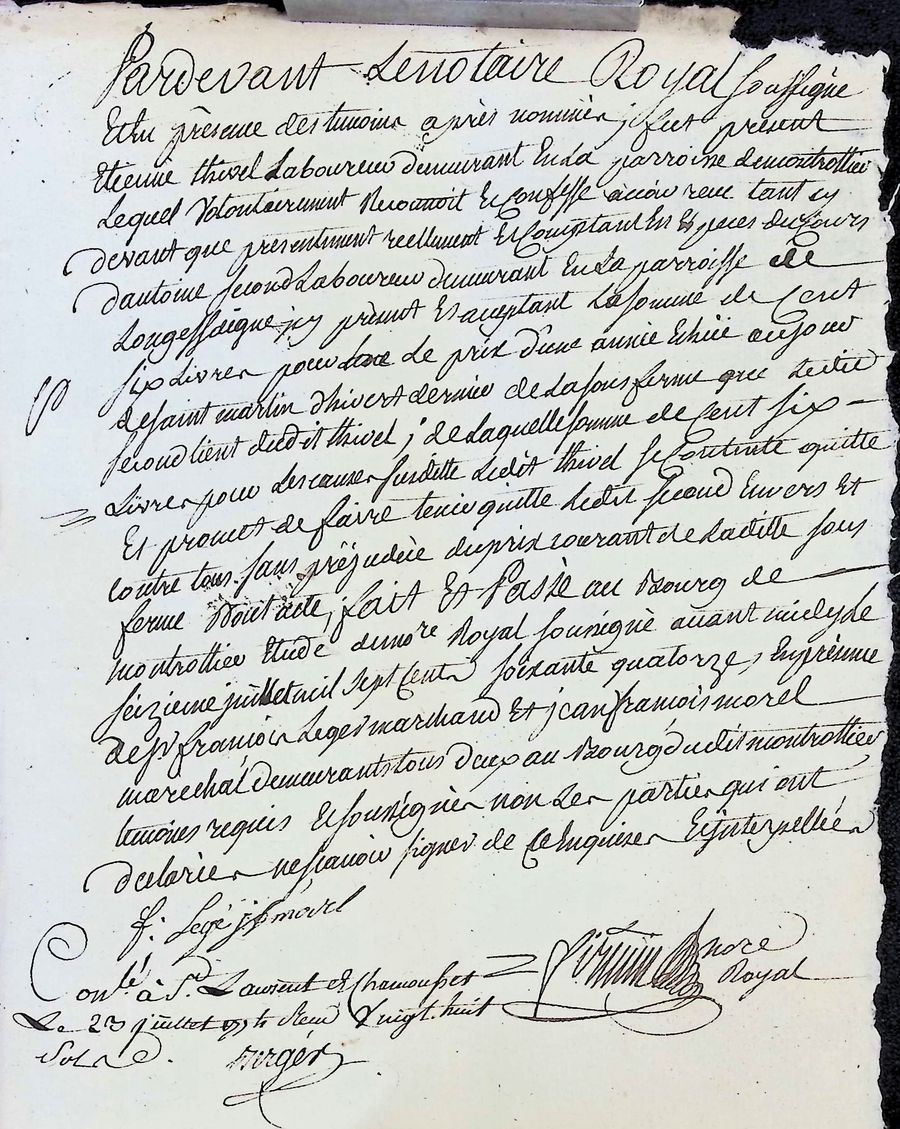 Pardevant Le notaire Royal soussigne
Et En presence des temoins après nommés ; fut present
Etienne thivel Laboureur demeurant En La parroisse de montrottier
Lequel Volontairement Reconnoit Et Confesse avoir receu tant cy
devant que presentement reellement Et Comptant En Especes du Cours
dantoine second Laboureur demeurant En La parroisse de
Longessaigne icy present Et aceptant La somme de Cent
six Livres pour Le prix d'une année Echüe au jour
de saint martin d'hivert dernier de La sous ferme que Ledit
second tient dudit thivel ; de Laquelle somme de Cent six
Livres pour Les causes susditte Ledit thivel se Contente quitte
Et promet de faire tenir quitte Ledit second Envers Et
contre tous sans prejudice du prix courant de Laditte sous
ferme Dont acte, fait Et Passé au Bourg de
montrottier Etude du no.re Royal soussigné avant midy le
seizieme juillet mil sept Cent soixante quatorze, En presence
de sr. francois Leger marchand Et jean francois morel
marechal demeurants tous deux au Bourg dudit montrottier
temoins requis Et soussignés non Les parties qui ont
declarées ne scavoir signer de Ce Enquises Et interpellées
f: Legé j f morel
notre
Royal
Conlé à St. Laurent de Chamousset
Le 23 juillet 1774 Receu Vingt huit
Sols
Berger